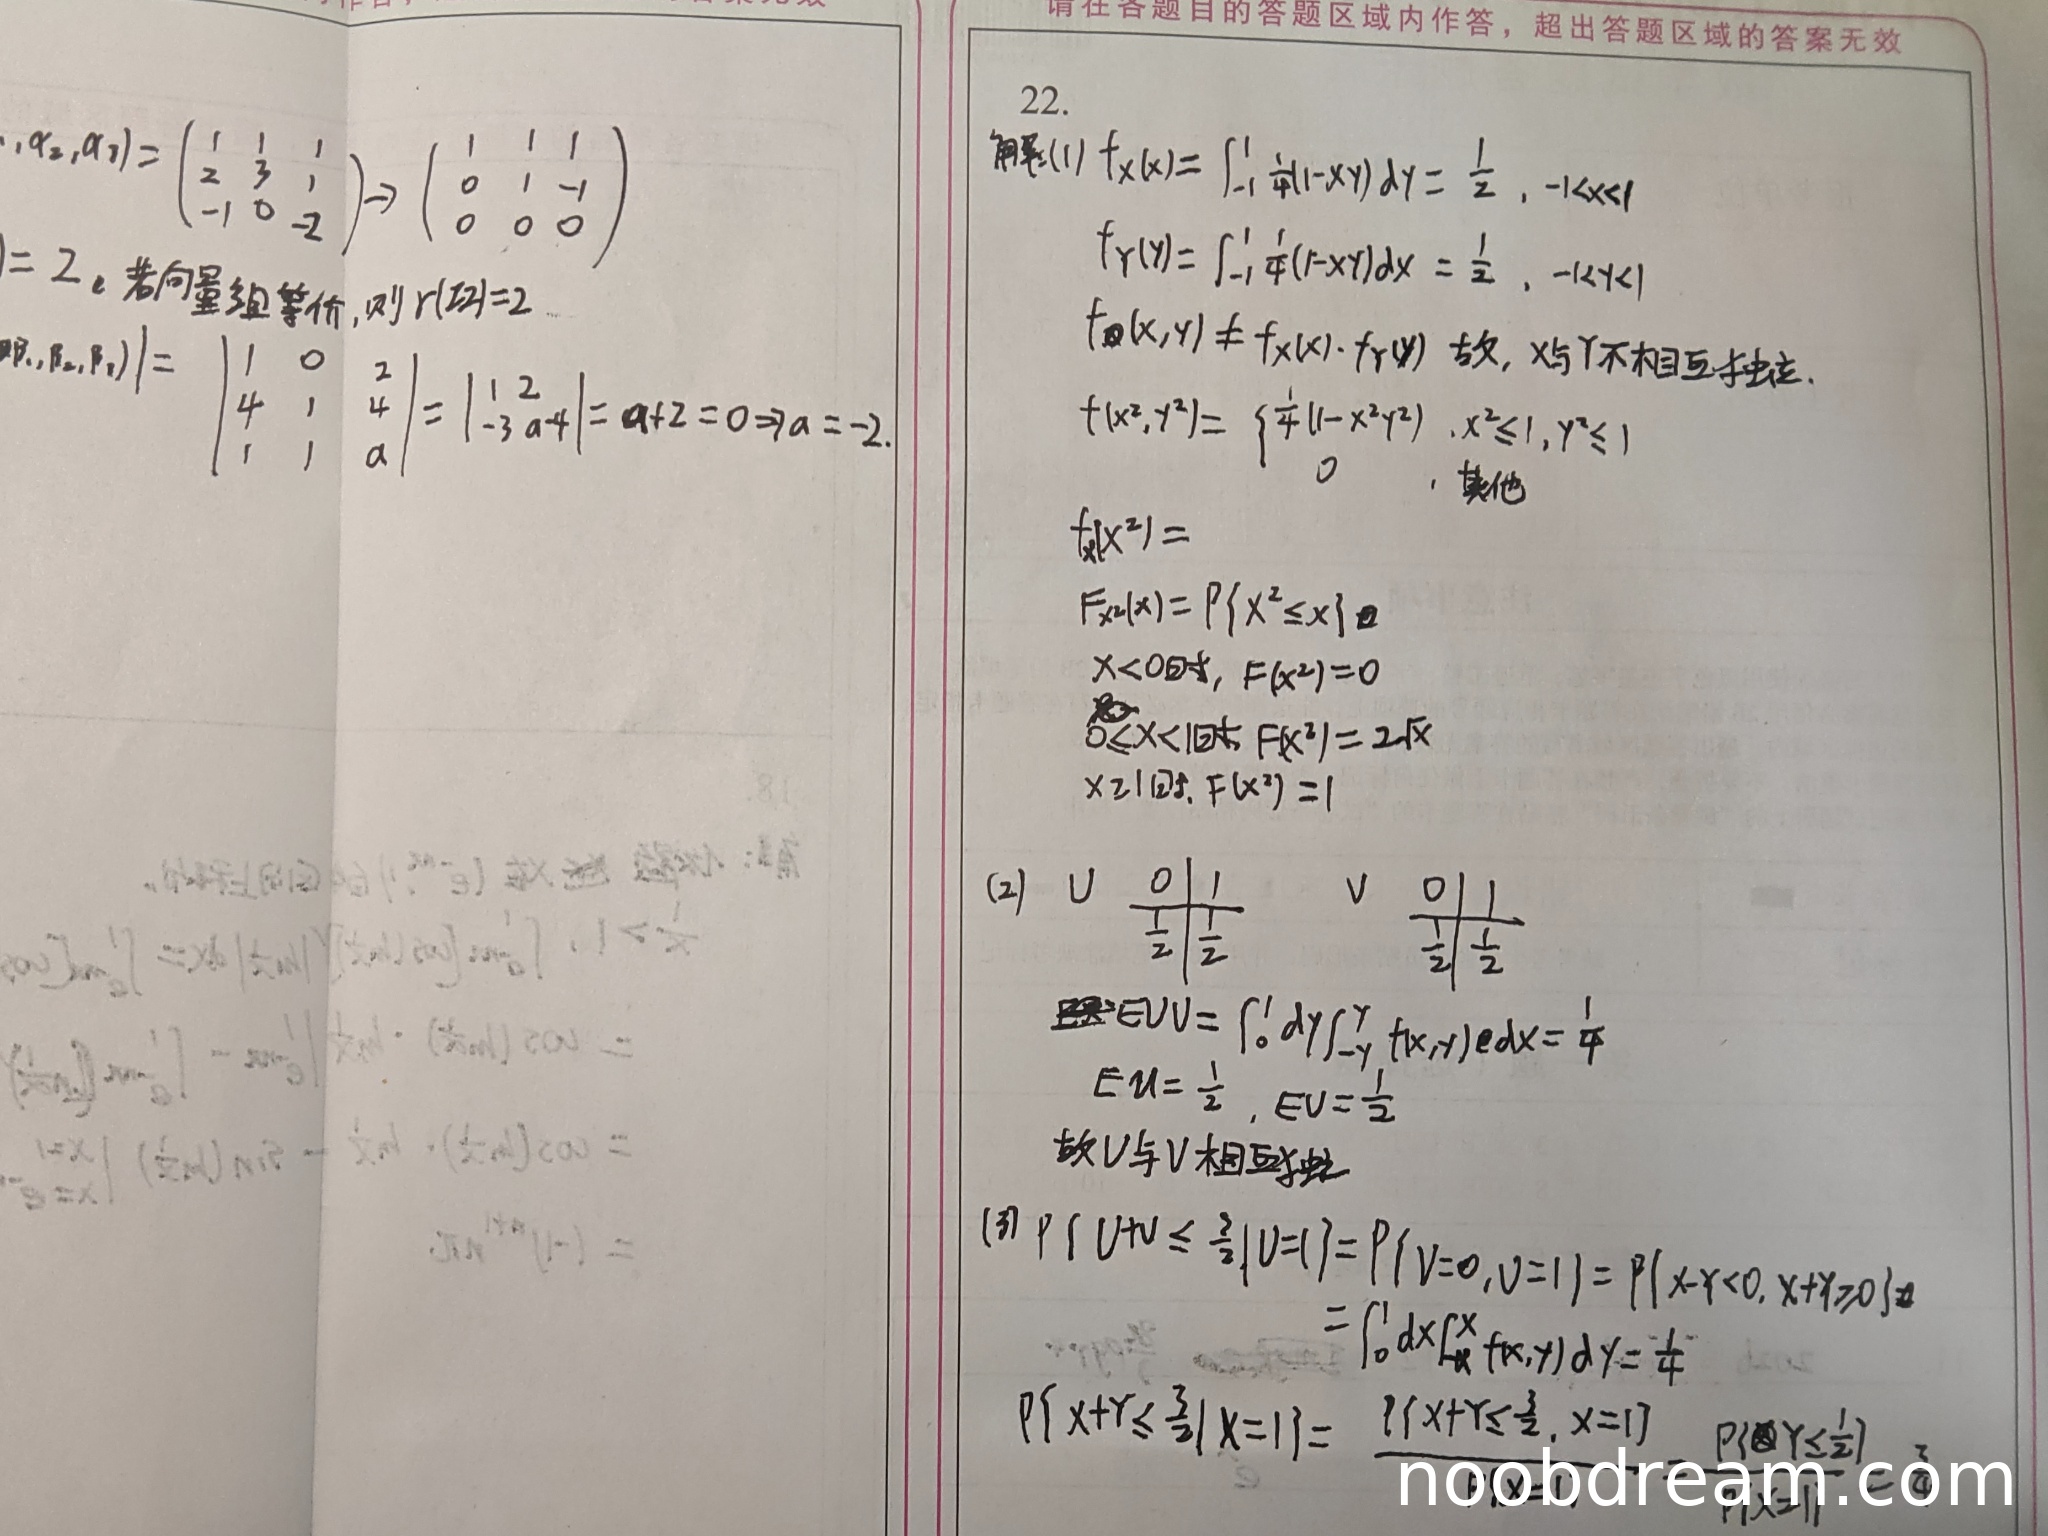 请在各题目的答题区域内作答，超出答题区域的答案无效
,α₂,α₃)= (1 1 1; 2 3 1; -1 0 -2) → (1 1 1; 0 1 -1; 0 0 0)
)=2. 若向量组等价,则r(II)=2
β₁,β₂,β₃)|= |1 0 2; 4 1 4; 1 1 a| = |1 2; -3 a-4| = a+2=0⇒a=-2.
22.
解:(1) f_X(x)=∫₋₁¹ ¼(1-xy)dy=½, -1<x<1
f_Y(y)=∫₋₁¹ ¼(1-xy)dx=½, -1<y<1
f(x,y)≠f_X(x)·f_Y(y) 故, X与Y不相互独立.
f(x²,y²)={¼(1-x²y²), x²≤1, y²≤1
0, 其他
f_X(x²)=
F_X²(x)=P{X²≤x}
x<0时, F(x²)=0
0≤x<1时, F(x²)=2√x
x≥1时, F(x²)=1
(2) U 0 1 V 0 1
½ ½ ½ ½
EUV=∫₀¹dy∫₋yʸ f(x,y)dx=¼
EU=½, EV=½
故U与V相互独立
(3) P{U+V≤3/2|U=1}=P{V=0,U=1}=P{X-Y<0, X+Y≥0}
=∫₀¹dx∫₋ₓˣ f(x,y)dy=¼
P{X+Y≤3/2|X=1}= P{X+Y≤3/2, X=1}/P{X=1} = P{Y≤½}/P{X=1} = 3/4
noobdream.com